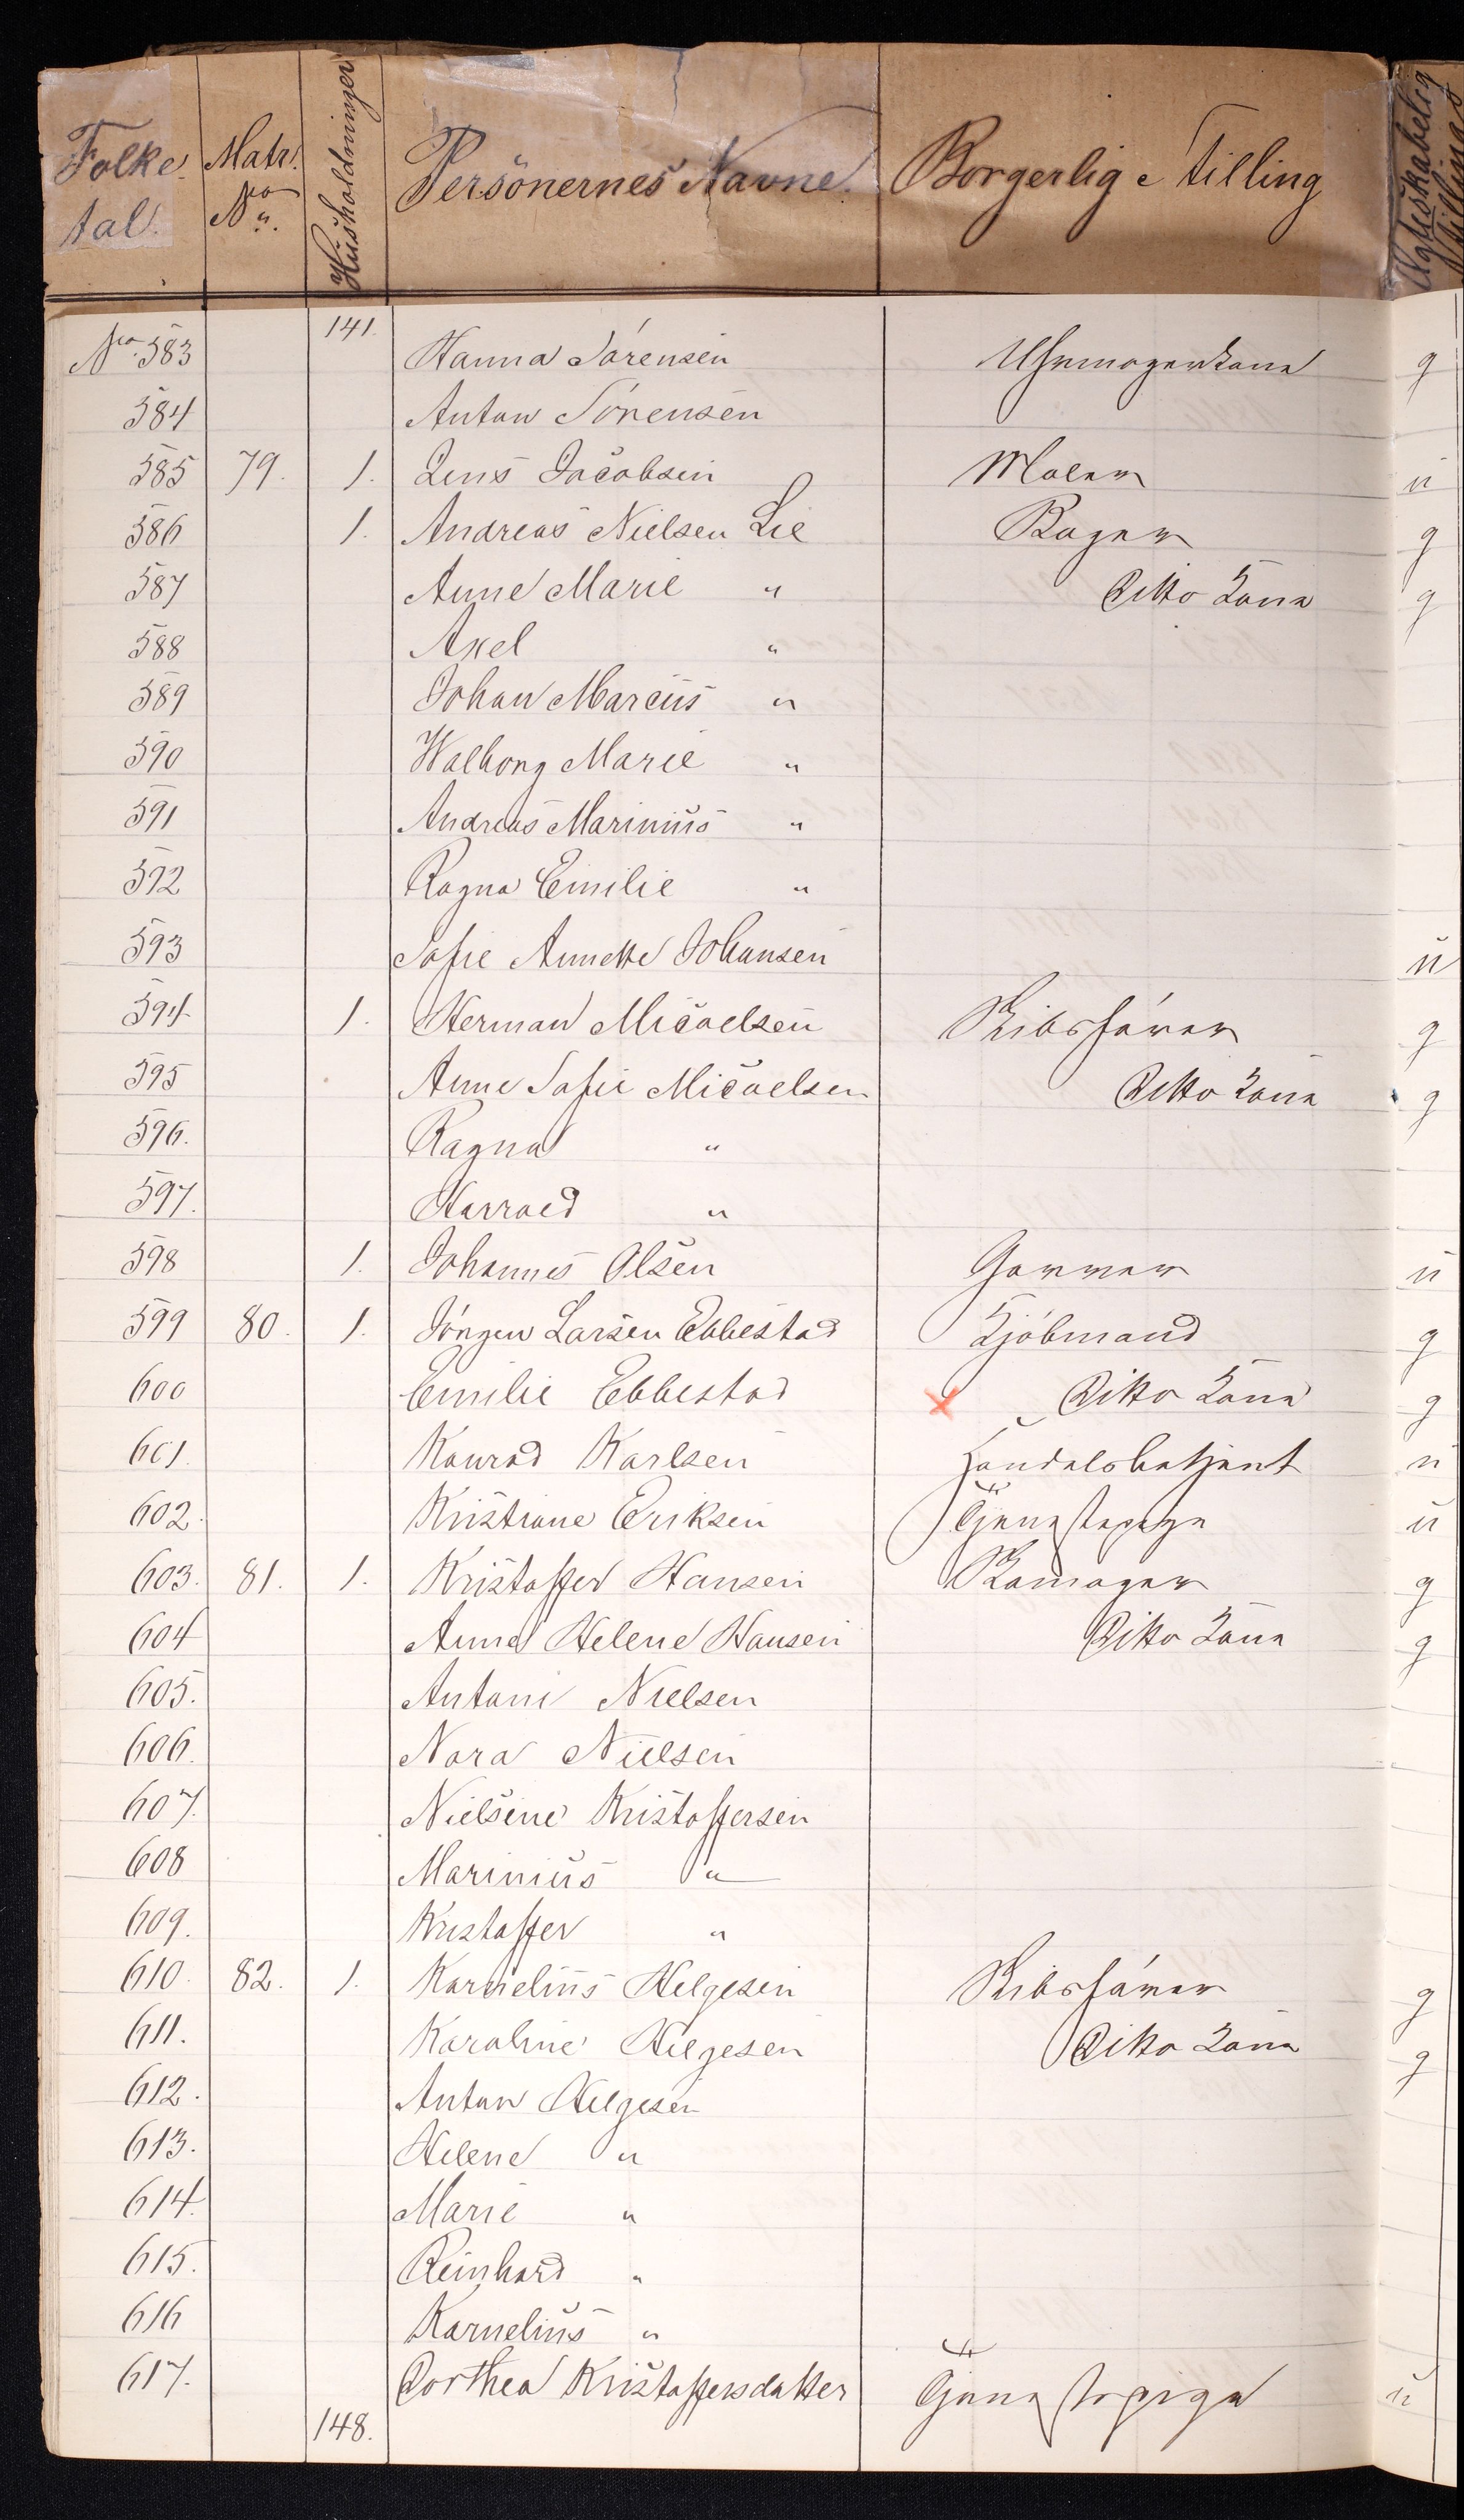 Folke- Matr. Husholdninger Personernes Navne. Borgerlig Stilling Ægteskabelig Stilling
tal. No.
141.
No. 583 Hanna Sörensen Uhrmagerkone g
584 Anton Sörensen
585 79. 1. Jens Jacobsen Maler u
586 1. Andreas Nielsen Lie Bager g
587 Anne Marie " Ditto Kone g
588 Axel "
589 Johan Marcus "
590 Walborg Marie "
591 Andreas Marinius "
592 Ragna Emilie "
593 Sofie Annette Johansen u
594 1. Herman Micaelsen Skibsförer g
595 Anne Sofie Micaelsen Ditto Kone g
596. Ragna "
597. Harrald "
598 1. Johannes Olsen Garver u
599 80. 1. Jörgen Larsen Ebbestad Kjöbmand g
600 Emilie Ebbestad x Ditto Kone g
601. Konrad Karlsen Handelsbetjent u
602. Kristiane Eriksen Tjenestepige u
603. 81. 1. Kristoffer Hansen g
604 Anna Helene Hansen Ditto Kone g
605. Antoni Nielsen
606. Nora Nielsen
607. Nielsine Kristoffersen
608 Marinius "
609. Kristoffer "
610. 82. 1. Karnelius Helgesen Skibsförer g
611. Karoline Helgesen Ditto Kone g
612. Anton Helgesen
613. Helene "
614. Marie "
615. Reinhard "
616 Karnelius "
617. Dorthea Kristoffersdatter Tjenestepige u
148.